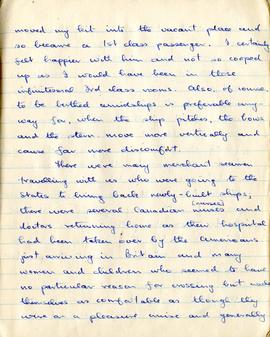 moved my kit into the vacant place and
so became a 1st class passenger. I certainly
felt happier with him and not so cooped
up as I would have been in those
infinitesimal 3rd class rooms. Also, of course,
to be berthed amidships is preferable any
way for, when the ship pitches, the bows
and the stern move more vertically and
cause far more discomfort.
There were many merchant seamen
travelling with us who were going to the
States to bring back newly-built ships,
there were several Canadian nurses and
(nurses)
doctors returning home as their hospital
had been taken over by the Americans
just arriving in Britain and many
women and children who seemed to have
no particular reason for crossing but made
themselves as comfortable as though they
were on a pleasure cruise and generally